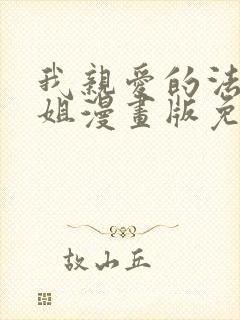 我親愛的法
姐漫畫版免
故山丘